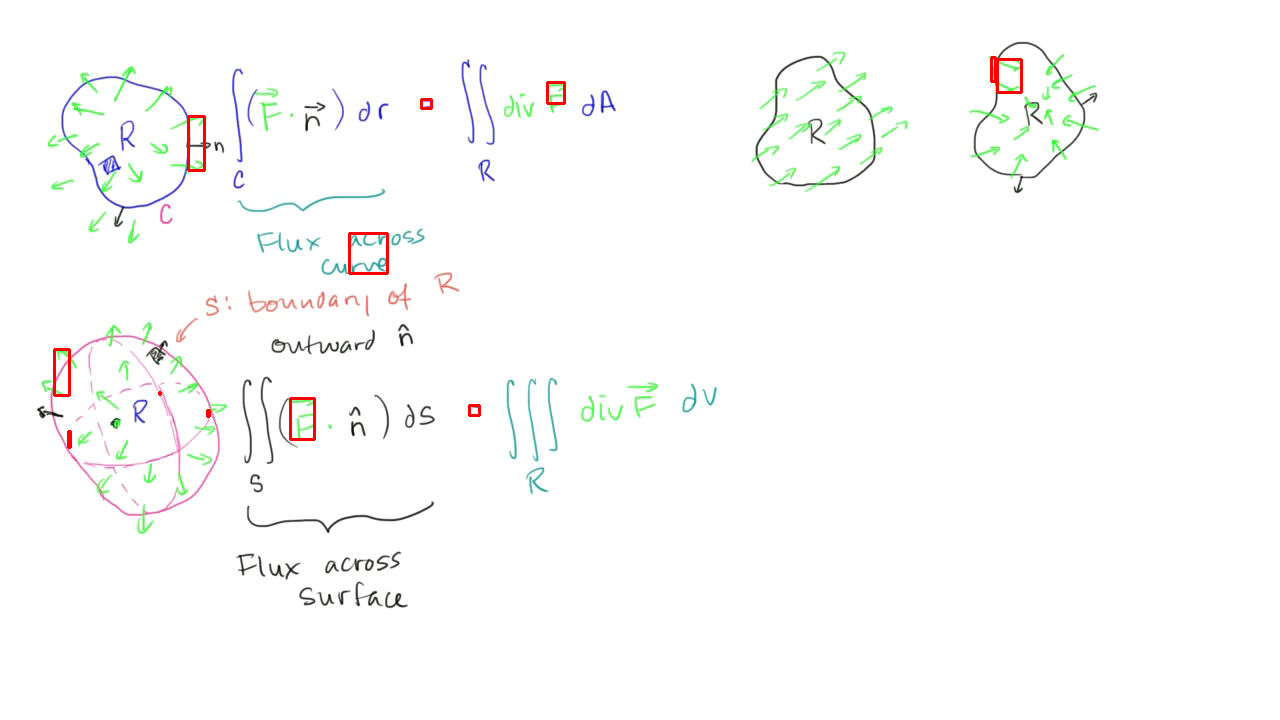 R n C
∫_C (F⃗ · n⃗) dr = ∬_R div F⃗ dA
Flux across
curve
R
R
S: boundary of R
outward n̂
R
∬_S (F⃗ · n̂) dS = ∭_R div F⃗ dV
Flux across
surface